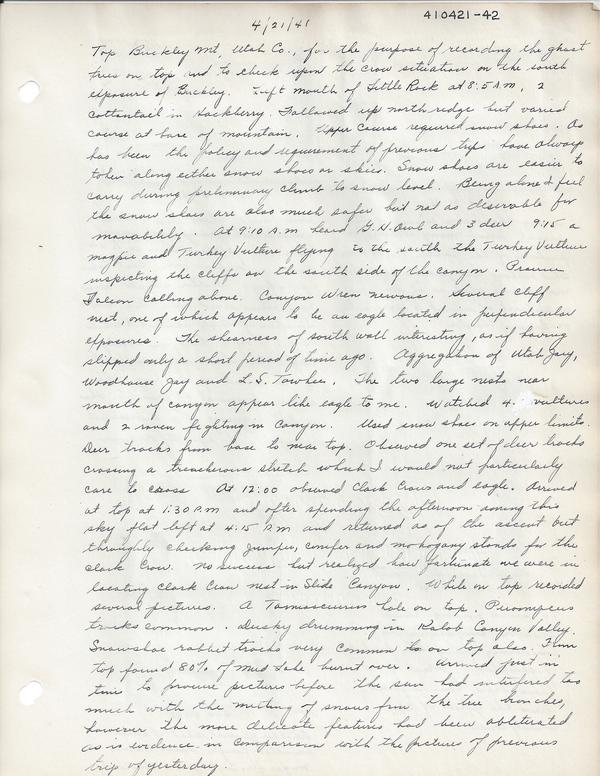 410421-42
4/21/41
Top Buckley Mt, Utah Co., for the purpose of recording the ghost
trees on top and to check upon the crow situation on the south
exposure of Buckley. Left mouth of Little Rock at 8:5 A.M., 2
cottontail in Hackberry. Followed up north ridge but varied
course at base of mountain. Upper course required snow shoes. As
has been the policy and requirement of previous trips have always
taken along either snow shoes or skiis. Snow shoes are easier to
carry during preliminary climb to snow level. Being alone I feel
the snow shoes are also much safer but not as desirable for
movability. At 9:10 A.M heard G. H. Owl and 3 deer 9:15 a
magpie and Turkey Vulture flying to the south the Turkey Vulture
inspecting the cliffs on the south side of the canyon. Prairie
Falcon calling above. Canyon Wren nervous. Several cliff
nest, one of which appears to be an eagle located in perpendicular
exposures. The shearness of south wall interesting, as if having
slipped only a short period of time ago. Aggregation of Utah Jay,
Woodhouse Jay and L.S. Towhee. The two large nests near
mouth of canyon appear like eagle to me. Watched 4 vultures
and 2 raven fighting in Canyon. Used snow shoes on upper limits.
Deer tracks from base to near top. Observed one set of deer tracks
crossing a treacherous stretch which I would not particularly
care to cross At 12:00 observed Clark Crows and eagle. Arrived
at top at 1:30 P.M and after spending the afternoon among this
sky flat left at 4:15 P.M. and returned as of the ascent but
throughly checking Juniper, conifer and mohogany stands for the
Clark Crow. No success but realized how fortunate we were in
locating Clark Crow nest in Slide Canyon. While on top recorded
several pictures. A Tamiasciurus hole on top. Peromyscus
tracks common. Dusky drumming in Kolob Canyon Valley.
Snowshoe rabbit tracks very common to on top also. From
top found 80% of Mud Lake burnt over. Arrived just in
time to procure pictures before the sun had interfered too
much with the melting of snows from the tree branches,
however the more delicate features had been obliterated
as is evidence in comparison with the pictures of previous
trip of yesterday.